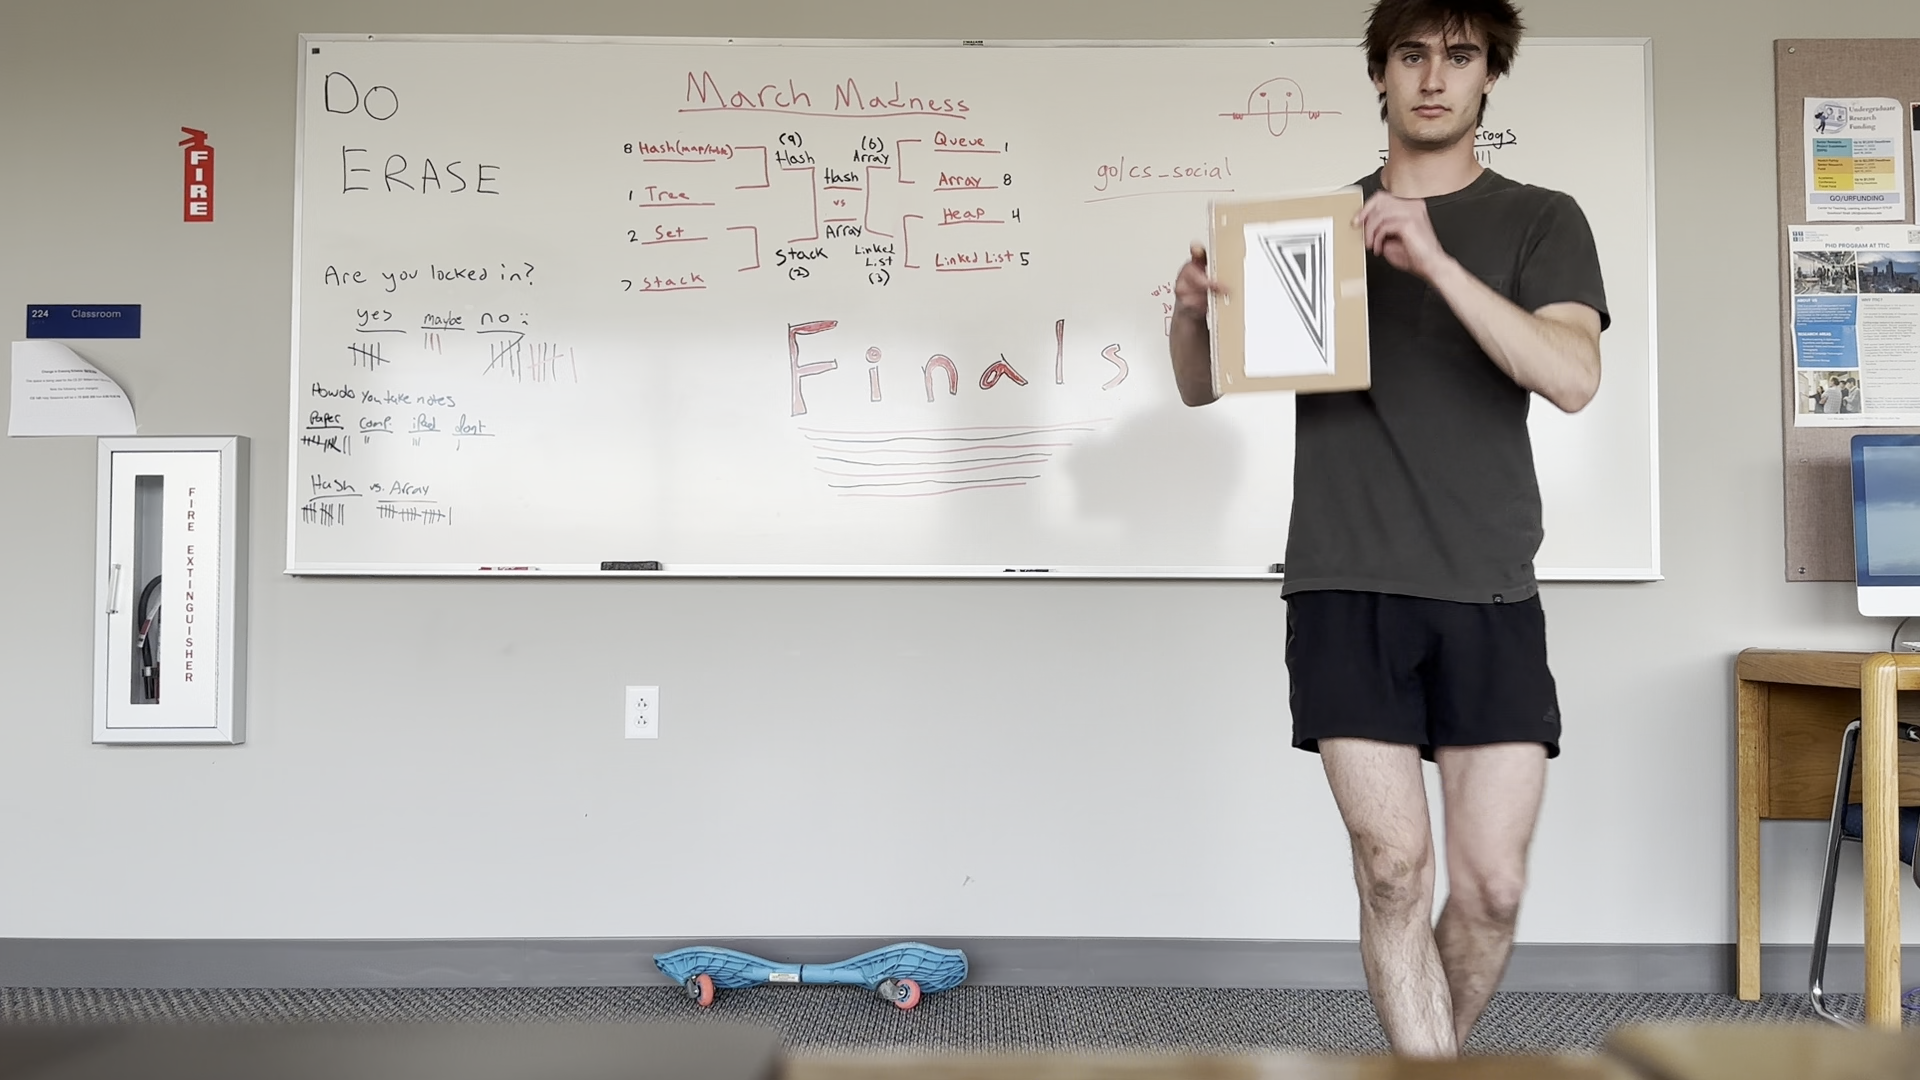 DO
ERASE
Are you locked in?
yes maybe no
How do you take notes
Paper comp. iPad dont
Hash vs. Array
March Madness
8 Hash(map/table)
1 Tree
2 Set
7 Stack
(9)
Hash
Stack
(2)
Hash
vs
Array
(6)
Array
Linked
List
(3)
Queue 1
Array 8
Heap 4
Linked List 5
Finals
go/cs_social
frogs
FIRE
224 Classroom
FIRE EXTINGUISHER
Undergraduate
Research
Funding
GO/URFUNDING
PHD PROGRAM AT TTIC